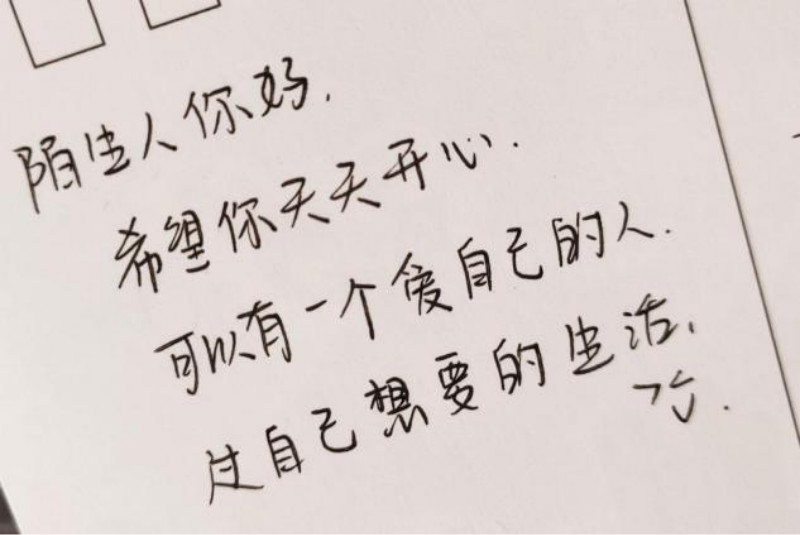 陌生人你好.
希望你天天开心.
可以有一个爱自己的人.
过自己想要的生活.